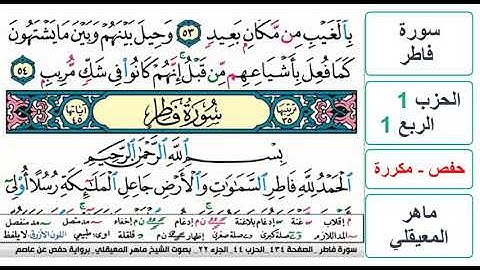 بِالْغَيْبِ مِن مَّكَانٍ بَعِيدٍ ٥٣ وَحِيلَ بَيْنَهُمْ وَبَيْنَ مَا يَشْتَهُونَ
كَمَا فُعِلَ بِأَشْيَاعِهِم مِّن قَبْلُ إِنَّهُمْ كَانُوا فِي شَكٍّ مُّرِيبٍ ٥٤
ترتيبها ٣٥ سُورَةُ فَاطِرٍ آياتها ٤٥
بِسْمِ اللَّهِ الرَّحْمَٰنِ الرَّحِيمِ
الْحَمْدُ لِلَّهِ فَاطِرِ السَّمَٰوَٰتِ وَالْأَرْضِ جَاعِلِ الْمَلَٰٓئِكَةِ رُسُلًا أُو۟لِىٓ
سورة فاطر _ الصفحة ٤٣٤ _ الحزب ٤٤ _ الجزء ٢٢ _ بصوت الشيخ ماهر المعيقلي _ برواية حفص عن عاصم
سورة
فاطر
الحزب 1
الربع 1
حفص - مكررة
ماهر
المعيقلي